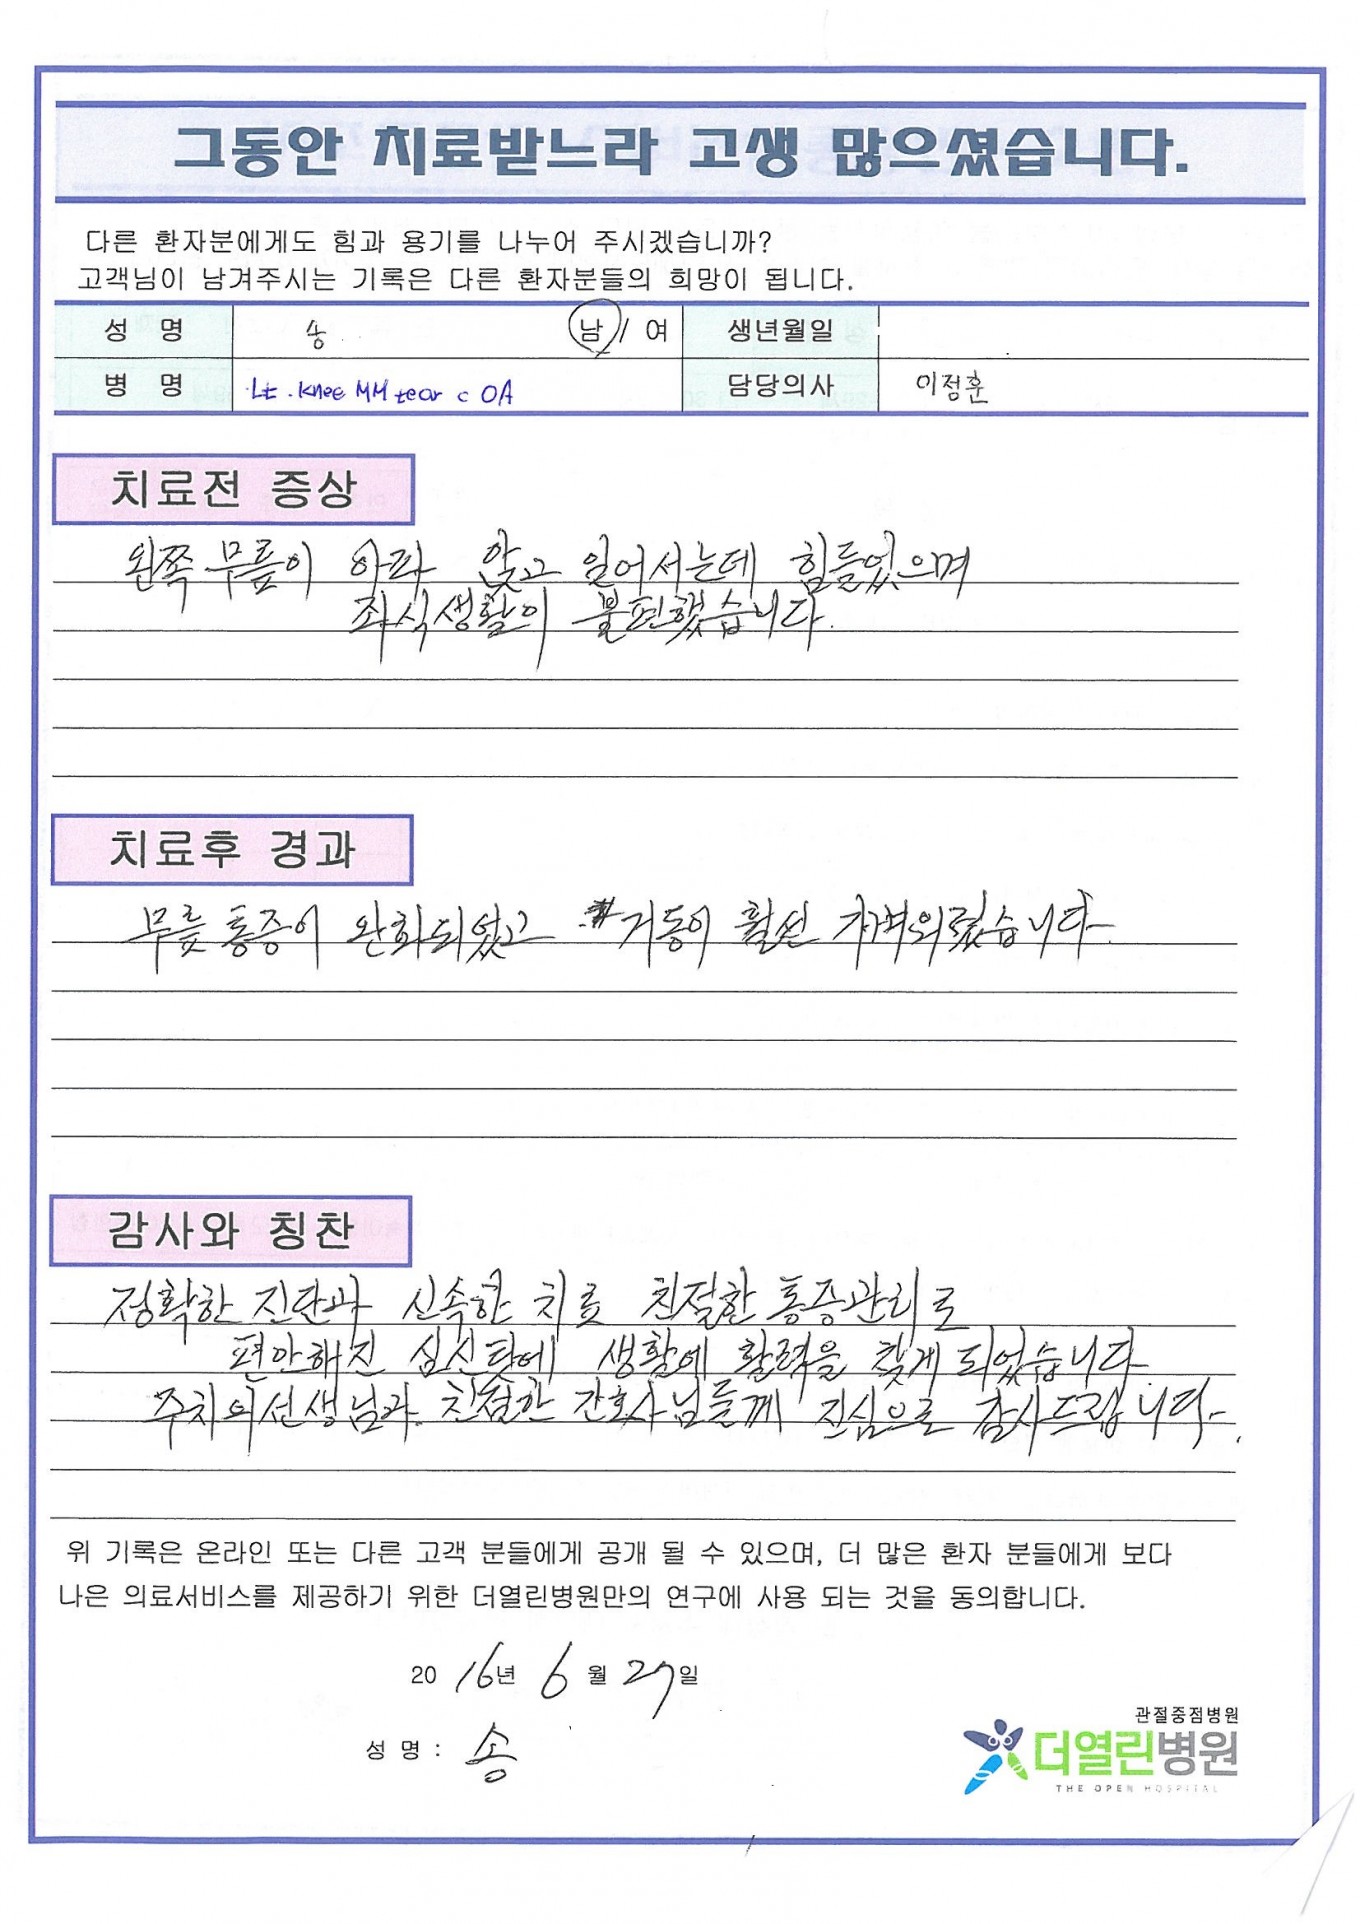 그동안 치료받느라 고생 많으셨습니다.
다른 환자분에게도 힘과 용기를 나누어 주시겠습니까?
고객님이 남겨주시는 기록은 다른 환자분들의 희망이 됩니다.
성 명 송 남 / 여 생년월일
병 명 Lt. knee MM tear c OA 담당의사 이정훈
치료전 증상
왼쪽 무릎이 아파 앉고 일어서는데 힘들었으며
좌식생활이 불편했습니다.
치료후 경과
무릎통증이 완화되었고 거동이 훨씬 자연스러웠습니다.
감사와 칭찬
정확한 진단과 신속한 치료 친절한 통증관리로
편안해진 심신탓에 생활에 활력을 찾게 되었습니다
주치의선생님과 친절한 간호사님들께 진심으로 감사드립니다.
위 기록은 온라인 또는 다른 고객 분들에게 공개 될 수 있으며, 더 많은 환자 분들에게 보다
나은 의료서비스를 제공하기 위한 더열린병원만의 연구에 사용 되는 것을 동의합니다.
20 16년 6 월 27일
성 명 : 송
관절중점병원
더열린병원
THE OPEN HOSPITAL